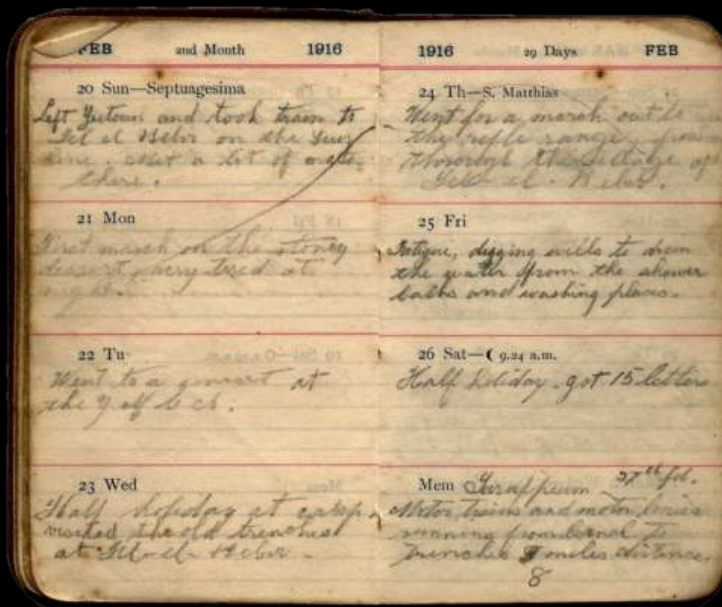 FEB 2nd Month 1916
20 Sun—Septuagesima
Left Zeitoun and took train to
Tel el Kebir on the Suez
line. Met a lot of mates
there.
21 Mon
First march on the stoney
dessert very tired at
night.
22 Tu
Went to a concert at
the Y of C ch.
23 Wed
Half holiday at camp.
visited the old trenches
at Tel-el-Keber.
1916 29 Days FEB
24 Th—S. Matthias
Went for a march out to
the rifle range, from
through the village of
Tel-el-Keber.
25 Fri
Fatigue, digging wells to drain
the water from the shower
baths and washing places.
26 Sat—☾ 9.24 a.m.
Half holiday. got 15 letters
Mem Serappeum 27th feb.
Motor trains and motor lories
running from Cernal to
trenches miles distance.
8